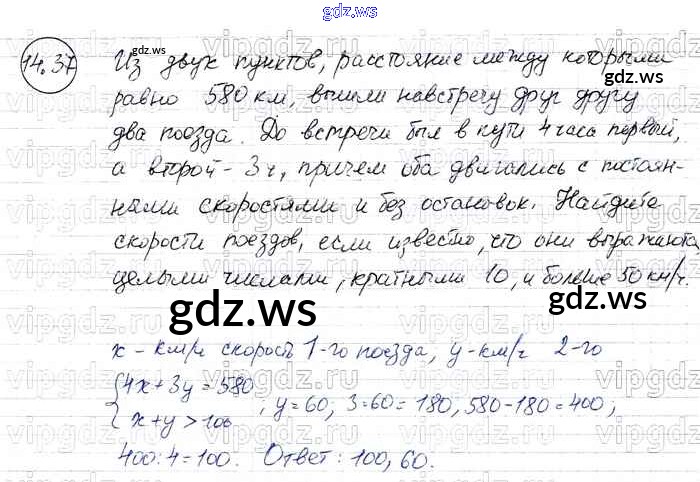 gdz.ws
14.37
Из двух пунктов, расстояние между которыми
равно 580 км, вышли навстречу друг другу
два поезда. До встречи был в пути 4 часа первый,
а второй - 3 ч, причем оба двигались с постоян-
ными скоростями и без остановок. Найдите
скорости поездов, если известно, что они выражаются
целыми числами, кратными 10, и больше 50 км/ч.
gdz.ws gdz.ws
x - км/ч скорость 1-го поезда, y - км/ч 2-го
{4x+3y=580
x+y>100 , y=60; 3=60=180, 580-180=400,
400:4=100. Ответ: 100, 60.
gdz.ws